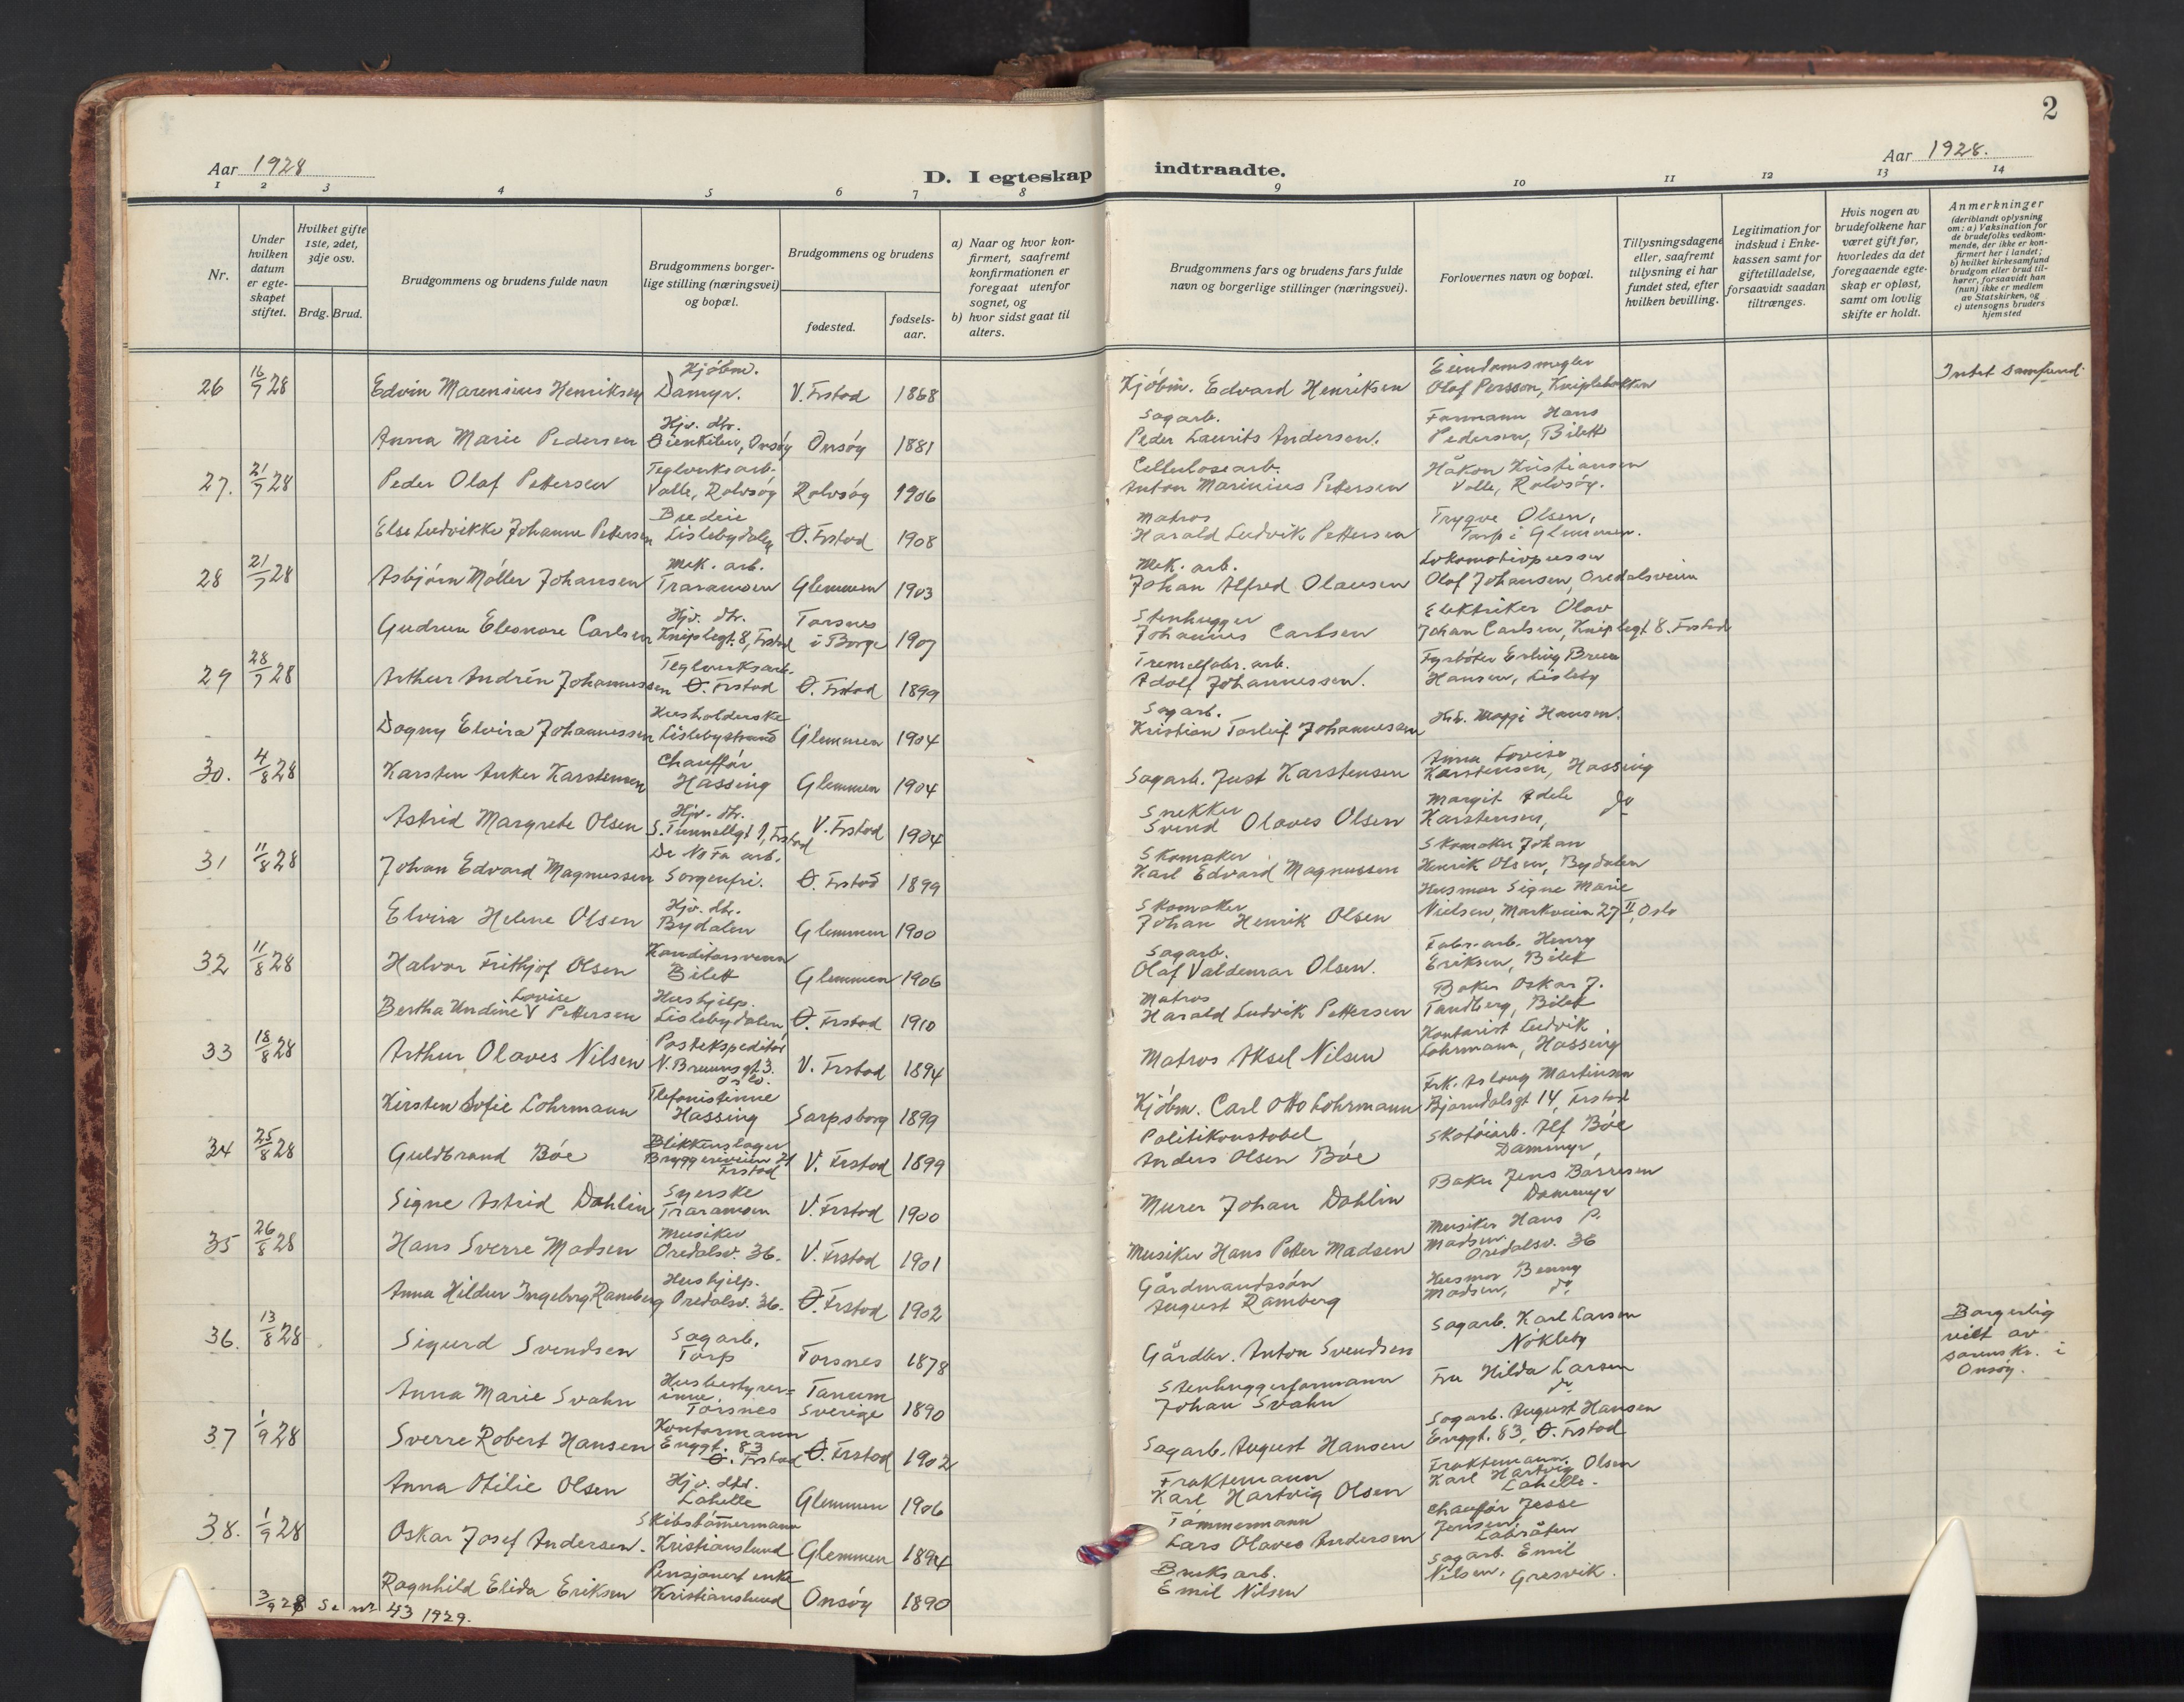 2
Aar 1928
D. I egteskap indtraadte.
Aar 1928.
1 2 3 4 5 6 7 8 9 10 11 12 13 14
Nr.
Under hvilken datum er egteskapet stiftet.
Hvilket gifte 1ste, 2det, 3dje osv.
Brdg. Brud.
Brudgommens og brudens fulde navn
Brudgommens borgerlige stilling (næringsvei) og bopæl.
Brudgommens og brudens
fødested.
fødselsaar.
a) Naar og hvor konfirmert, saafremt konfirmationen er foregaat utenfor sognet, og
b) hvor sidst gaat til alters.
Brudgommens fars og brudens fars fulde navn og borgerlige stillinger (næringsvei).
Forlovernes navn og bopæl.
Tillysningsdagene eller, saafremt tillysning ei har fundet sted, efter hvilken bevilling.
Legitimation for indskud i Enkekassen samt for giftetilladelse, forsaavidt saadan tiltrænges.
Hvis nogen av brudefolkene har været gift før, hvorledes da det foregaaende egteskap er opløst, samt om lovlig skifte er holdt.
Anmerkninger (deriblandt oplysning om: a) Vaksination for de brudefolks vedkommende, der ikke er konfirmert her i landet; b) hvilket kirkesamfund brudgom eller brud tilhører, forsaavidt han (hun) ikke er medlem av Statskirken, og c) utensogns bruders hjemsted
26 16/7 28 Edvin Marensius Henriksen Kjøbm. Damyr. V. Frstad 1868 Kjøbm. Edvard Henriksen Eiendomsmegler Olaf Persson, Intet samfund
Anna Marie Pedersen Hjv. dtr. Onsøy Onsøy 1881 Sagarb. Peder Laurits Andersen. Formann Hans Pedersen, Bilett
27. 21/7 28 Peder Olaf Pettersen Teglverksarb. Valle, Rolvsøy Rolvsøy 1906 Cellulosearb. Anton Marinius Pettersen Håkon Kristiansen Valle, Rolvsøy.
Else Ludvikke Johanne Pettersen Lislebydalen Ø. Frstad 1908 Matros Harald Ludvik Pettersen Trygve Olsen, Torp i Glemmen.
28 21/7 28 Asbjørn Møller Johansen Mek. arb. Traramoen Glemmen 1903 Mek. arb. Johan Alfred Olausen Lokomotivpusser Olaf Johansen, Oredalsveien
Gudrun Eleonore Carlsen Hjv. dtr. Kniplegt. 8, Frstad Torsnes i Borge 1907 Stenhugger Johannes Carlsen Elektriker Olav Johan Carlsen, Kniplegt 8. Frstad
29 28/7 28 Arthur Andrén Johannessen Teglverksarb. Ø. Frstad Ø. Frstad 1899 Adolf Johannessen. Fyrbøter Erling Hansen, Lisleby
Dagny Elvira Johannessen Husholderske Lislebystrand Glemmen 1904 Sagarb. Kristian Torleif Johannessen Hansen.
30. 4/8 28 Karsten Anker Karstensen Chauffør Hassing Glemmen 1904 Sagarb. Just Karstensen Anna Lovise Karstensen, Hassing
Astrid Margrete Olsen Hjv. dtr. S. Tunnellgt 1, Frstad V. Frstad 1904 Snekker Svend Olaves Olsen Margit Adele Karstensen, do
31 11/8 28 Johan Edvard Magnussen De No Fa arb. Sorgenfri. Ø. Frstad 1899 Skomaker Karl Edvard Magnussen Skomaker Johan Henrik Olsen, Bydalen
Elvira Helene Olsen Hjv. dtr. Bydalen Glemmen 1900 Skomaker Johan Henrik Olsen Husmor Signe Marie Nielsen, Markveien 27 II, Oslo
32 11/8 28 Halvor Frithjof Olsen Konditorsvenn Bilett Glemmen 1906 Sagarb. Olaf Valdemar Olsen. Fabr.-arb. Henry Eriksen, Bilet
Bertha Undine Lovise Pettersen Hushjelp. Lislebydalen Ø. Frstad 1910 Matros Harald Ludvik Pettersen Baker Oskar J. Tandberg, Bilet
33 18/8 28 Arthur Olaves Nilsen Postekspeditør N. Bruunsgt. 3. Oslo. V. Frstad 1894 Matros Aksel Nilsen Kontorist Ludvik Lohrmann, Hassing
Kirsten Sofie Lohrmann Tlefonistinne Hassing Sarpsborg 1899 Kjøbm. Carl Otto Lohrmann Frk. Aslaug Martinsen Bjørndalsgt 14, Frstad
34 25/8 28 Guldbrand Bøe Blikkenslager Bryggeriveien 21 Frstad V. Frstad 1899 Politikonstabel Anders Olsen Bøe Skotøiarb. Alf Bøe Dammyr
Signe Astrid Dahlin Syerske Traramoen V. Frstad 1900 Murer Johan Dahlin Baker Jens Børresen Dammyr
35 26/8 28 Hans Sverre Madsen Musiker Oredalsv. 36. V. Frstad 1901 Musiker Hans Petter Madsen Musiker Hans P. Madsen. Oredalsv. 36
Anna Hildur Ingeborg Ramberg Hushjelp. Oredalsv. 36. Ø. Frstad 1902 Gårdmandssøn August Ramberg Husmor Benny Madsen, do
36. 13/8 28 Sigurd Svendsen Sagarb. Torp Torsnes 1878 Gårdbr. Anton Svendsen Sagarb. Karl Larsen Nøkleby Borgerlig viet av sorenskr. i Onsøy.
Anna Marie Svahn Husbestyrerinne, Torsnes Tanum Sverige 1890 Stenhuggerformann Johan Svahn Fru Hilda Larsen do
37 1/9 28 Sverre Robert Hansen Kontormann Enggt. 83 Ø. Frstad Ø. Frstad 1902 Sagarb. August Hansen Sagarb. August Hansen Enggt. 83, Ø. Frstad
Anna Otilie Olsen Hjv. dtr. Lahelle Glemmen 1906 Fraktemann Karl Hartvig Olsen Fraktemann Karl Hartvig Olsen Lahelle.
38. 1/9 28 Oskar Josef Andersen. Skibstømmermann Kristianslund Glemmen 1894 Tømmermann Lars Olaves Andersen Chauffør Jesse Jensen, Labråten
Ragnhild Elida Eriksen Pensjonert enke Kristianslund Onsøy 1890 Bruksarb. Emil Nilsen Sagarb. Emil Nilsen, Gresvik.
3/9 28 Se nr 43 1929.